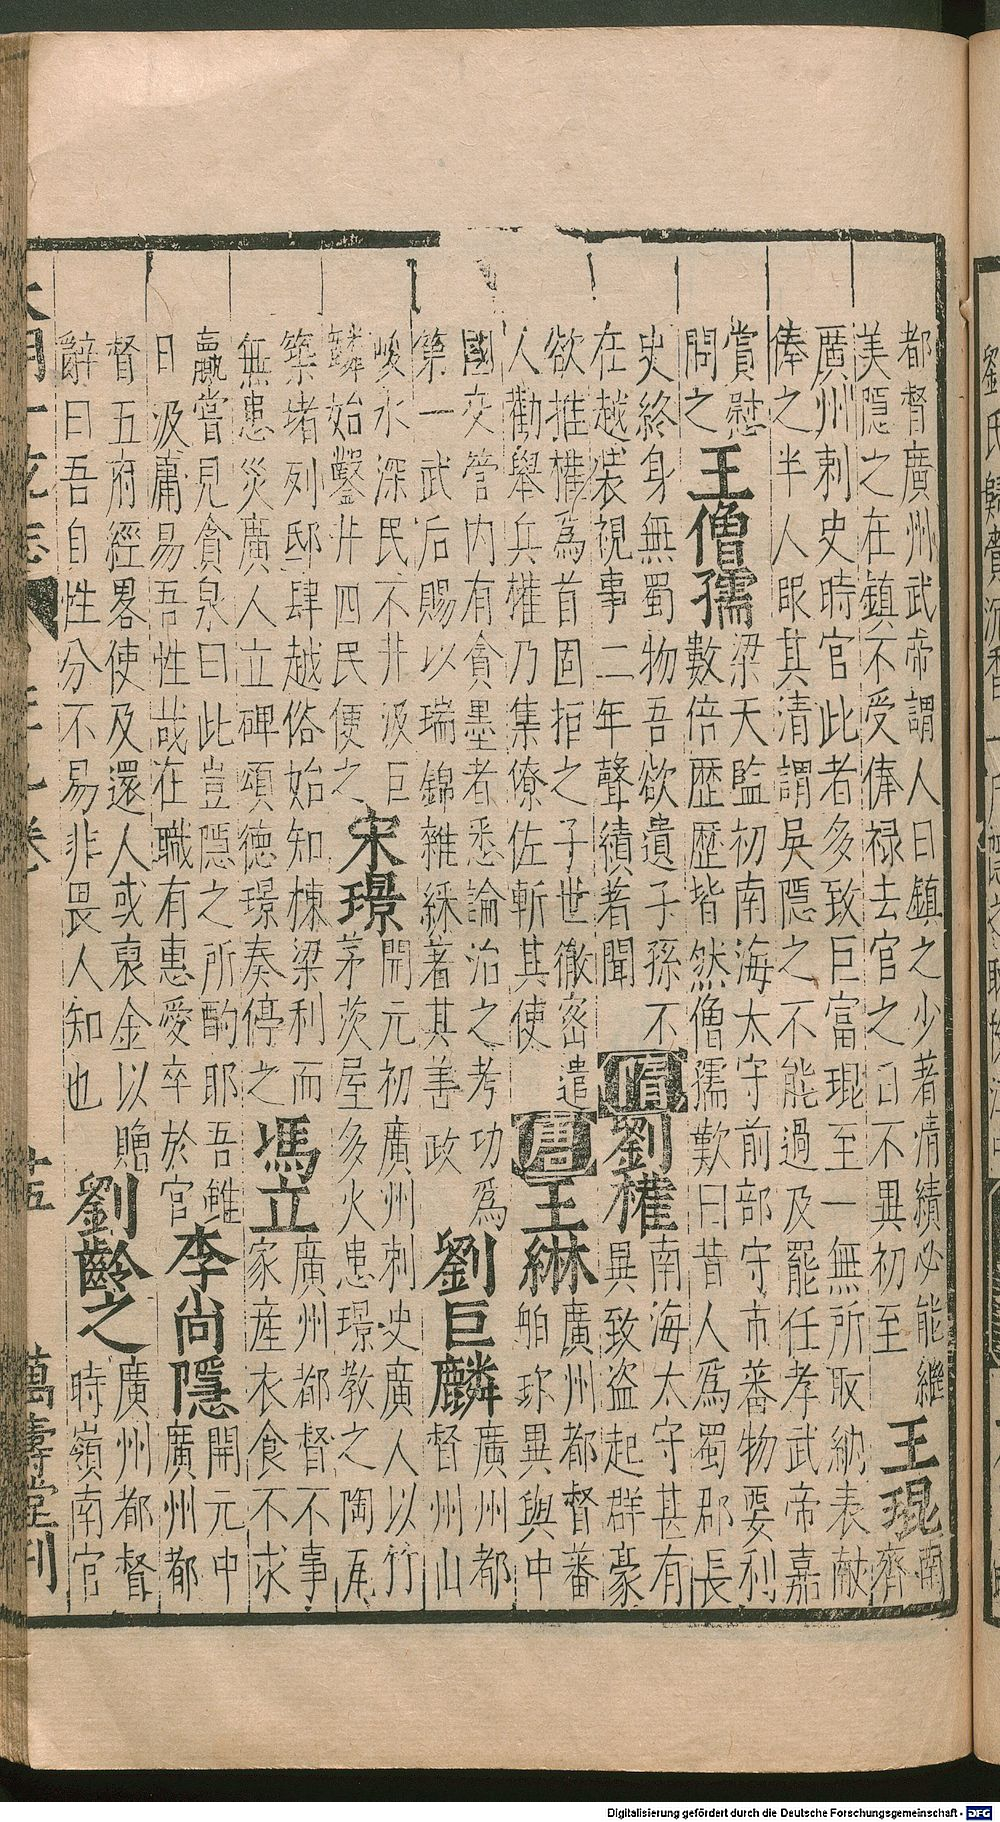 都督廣州武帝謂人曰鎮之少著清績必能繼
美隱之在鎮不受俸祿去官之日不異初至
王琨
南
齊
廣州刺史時官此者多致巨富琨至一無所取納表献
俸之半人眼其清謂吳隱之不能過及罷任孝武帝嘉
賞慰
問之
王僧孺
梁天監初南海太守前部守市番物要利
數倍歴歷皆然僧孺歎曰昔人爲蜀郡長
史終身無蜀物吾欲遺子孫不
在越裝視事二年聲績著聞
隋
劉權
南海太守甚有
異致盜起群豪
欲推權爲首固拒之子世徹密遣
人勸舉兵權乃集僚佐斬其使
唐
王綝
廣州都督蕃
舶珎異與中
國交管内有貪墨者悉論治之考功爲
第一武后賜以瑞錦雜綵著其善政
劉巨麟
廣州都
督州山
峻水深民不井汲巨
麟始鑿井四民便之
宋璟
開元初廣州刺史廣人以竹
茅茨屋多火患璟教之陶瓦
築堵列邸肆越俗始知棟梁利而
無患災廣人立碑頌德璟奏停之
馮立
廣州都督不事
家産衣食不求
贏嘗見貪泉曰此豈隱之所酌耶吾雖
日汲庸易吾性哉在職有惠愛卒於官
李尚隱
開元中
廣州都
督五府經畧使及還人或裒金以贈
辭曰吾自性分不易非畏人知也
劉齡之
廣州都督
時嶺南官
大明一統志 卷 萬壽堂刊
Digitalisierung gefördert durch die Deutsche Forschungsgemeinschaft - DFG